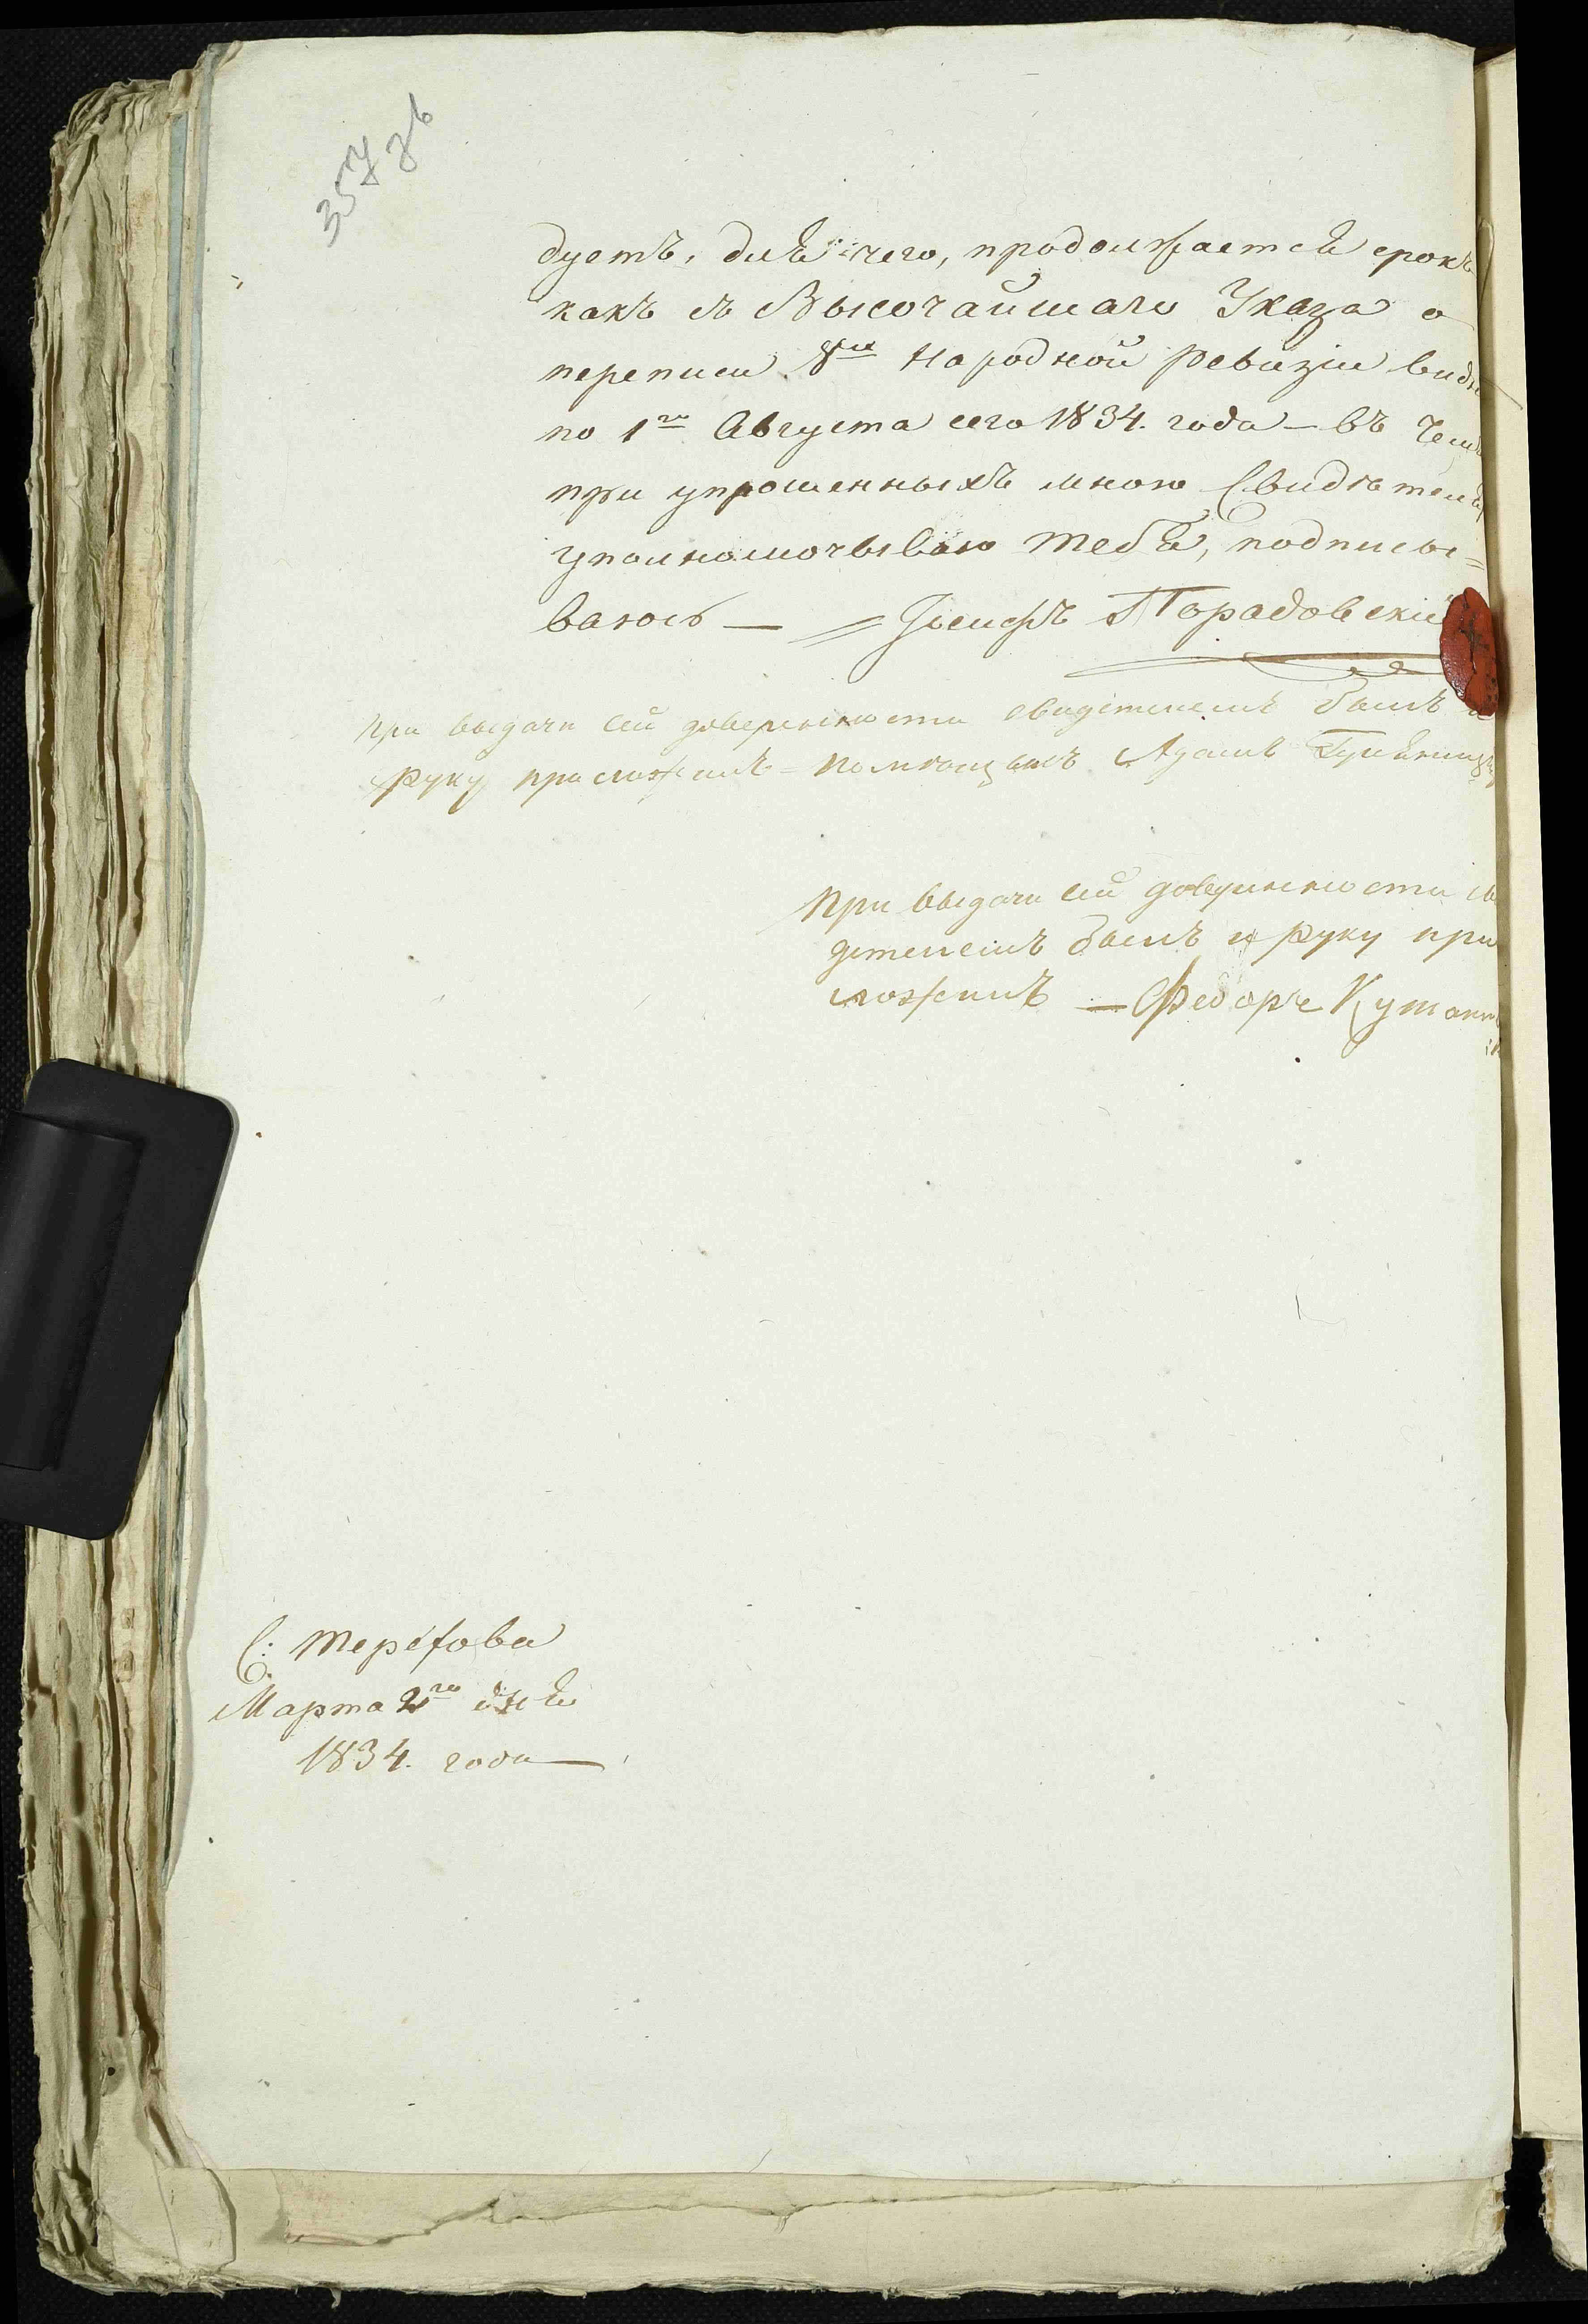 357 зв
дуетъ, для чего, продолжается срокъ
какъ съ Высочайшаго Указа о
переписи 8й Народной Ревизіи видн
по 1го Августа сего 1834. года — въ чемъ
при упрошенныхъ мною Свидѣтел
уполномочываю тебя, подписы=
ваюсь — = Іосифъ Порадовскій
При выдачи сей доверенности свидетелемъ былъ и
руку приложилъ = помѣщикъ Адамъ
При выдачи сей доверинности сви
детелемъ былъ и руку при
ложилъ — Федоръ
С: Терехова
Марта 2го дня
1834. года —